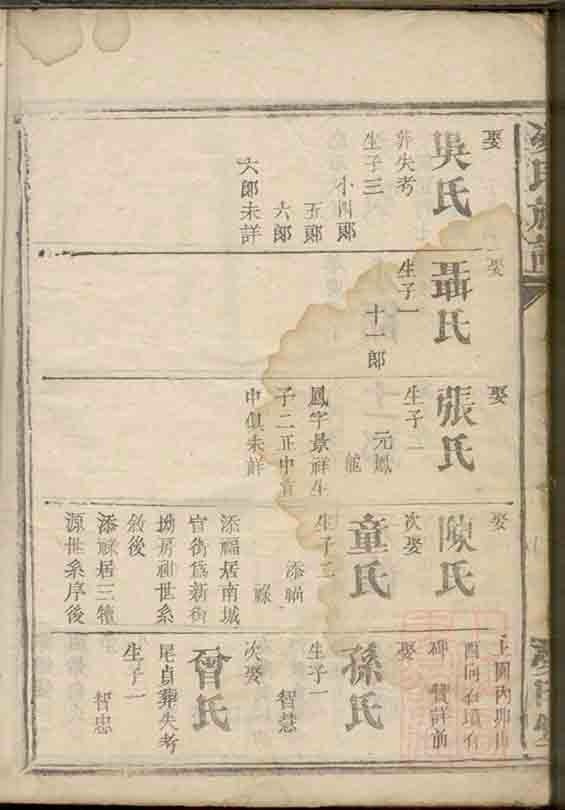 娶
吳氏
葬失考
生子三
小四郎
五郎
六郎
六郎未詳
娶
聶氏
生子一
十一郎
娶
張氏
生子二
元鳳
龍
鳳字景祥生
子二正中
中俱未詳
娶
陳氏
次娶
童氏
生子二
添福
祿
添福居南城
官街爲新街
坳房和世系
敘後
添祿居三犢
源世系序後
上圖內
酉向右
碑 贊詳前
娶
孫氏
生子一
智慧
次娶
曾氏
尾貞葬失考
生子一
智忠
氏族譜